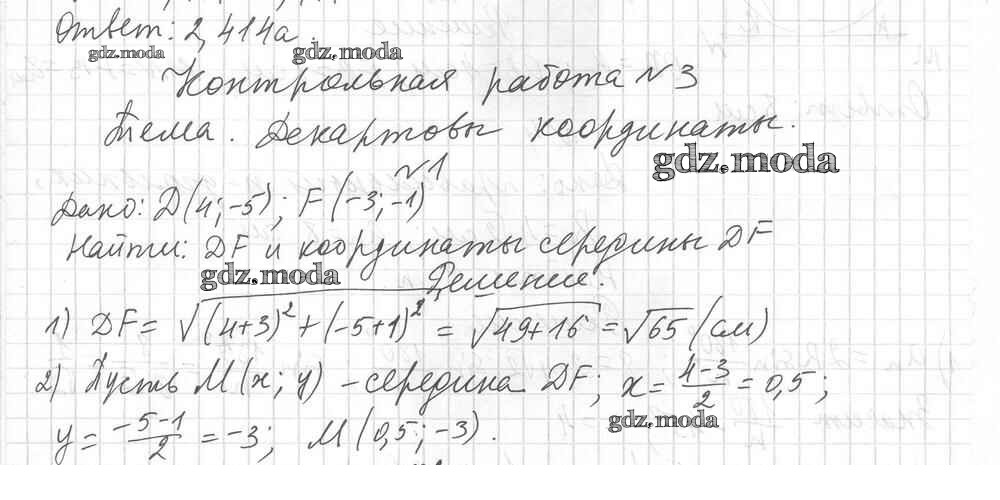 Ответ: 2,414a.
gdz.moda gdz.moda
Контрольная работа №3
Тема. Декартовы координаты.
gdz.moda
№1
Дано: D(4; -5); F(-3; -1)
Найти: DF и координаты середины DF
gdz.moda
Решение.
1) DF = √((4+3)²+(-5+1)²) = √(49+16) = √65 (см)
2) Пусть M(x; y) - середина DF; x = (4-3)/2 = 0,5;
gdz.moda
y = (-5-1)/2 = -3; M(0,5; -3).